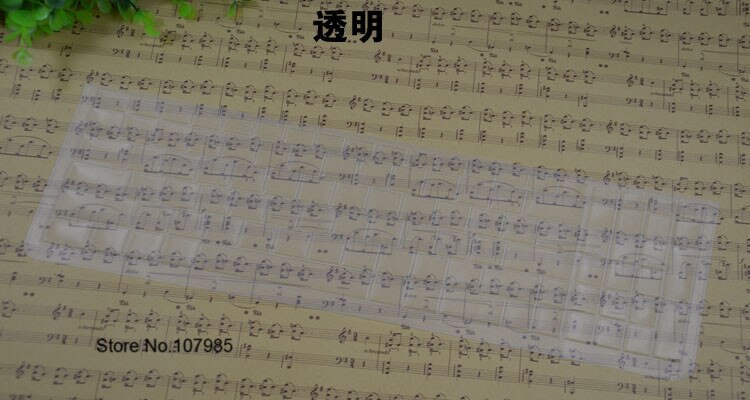 透明
Store No.107985